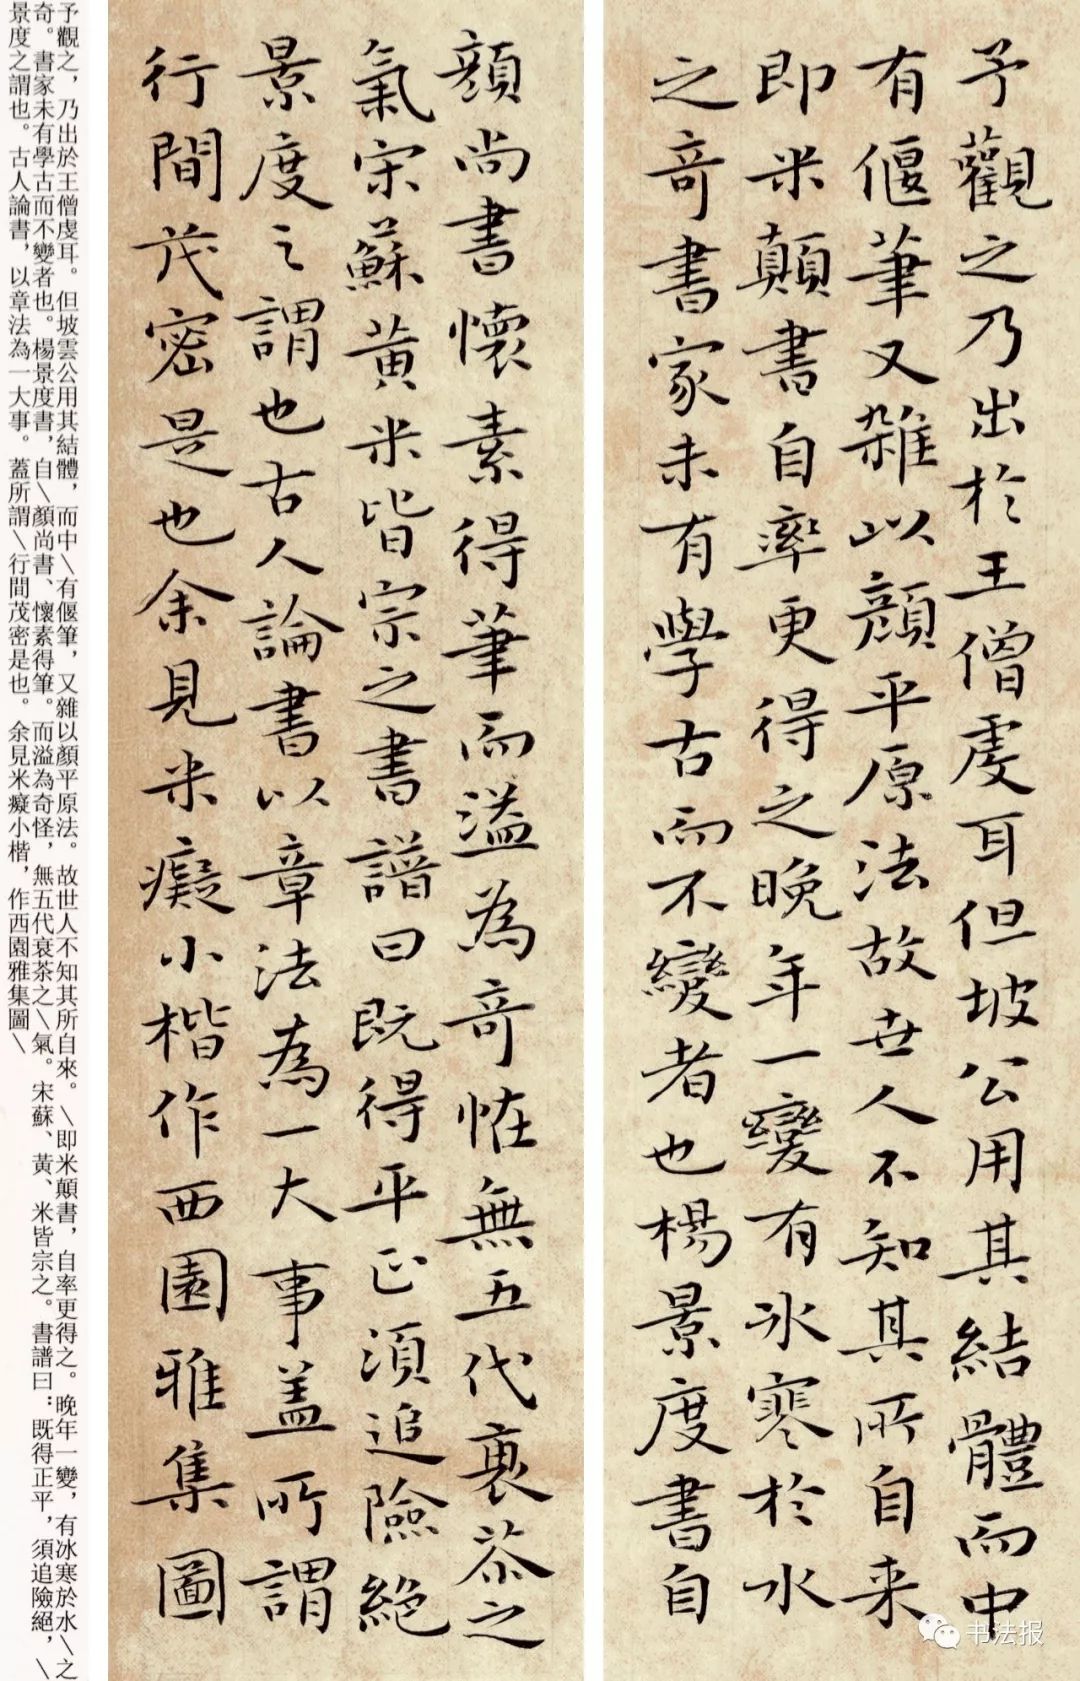 予觀之乃出於王僧虔耳但坡公用其結體而中
有偃筆又雜以顏平原法故世人不知其所自来
即米顛書自率更得之晚年一變有冰寒於水
之奇書家未有學古而不變者也楊景度書自
顏尚書懷素得筆而溢為奇怪無五代衰苶之
氣宋蘇黃米皆宗之書譜曰既得平正須追險絕
景度之謂也古人論書以章法為一大事盖所謂
行間茂密是也余見米癡小楷作西園雅集圖
予觀之，乃出於王僧虔耳。但坡雲公用其結體，而中\有偃筆，又雜以顏平原法。故世人不知其所自來。\即米顛書，自率更得之。晚年一變，有冰寒於水\之
奇。書家未有學古而不變者也。楊景度書，自\顏尚書、懷素得筆。而溢為奇怪，無五代衰茶之\氣。宋蘇、黃、米皆宗之。書譜曰：既得正平，須追險絕，\
景度之謂也。古人論書，以章法為一大事。蓋所謂\行間茂密是也。余見米癡小楷，作西園雅集圖\
书法报